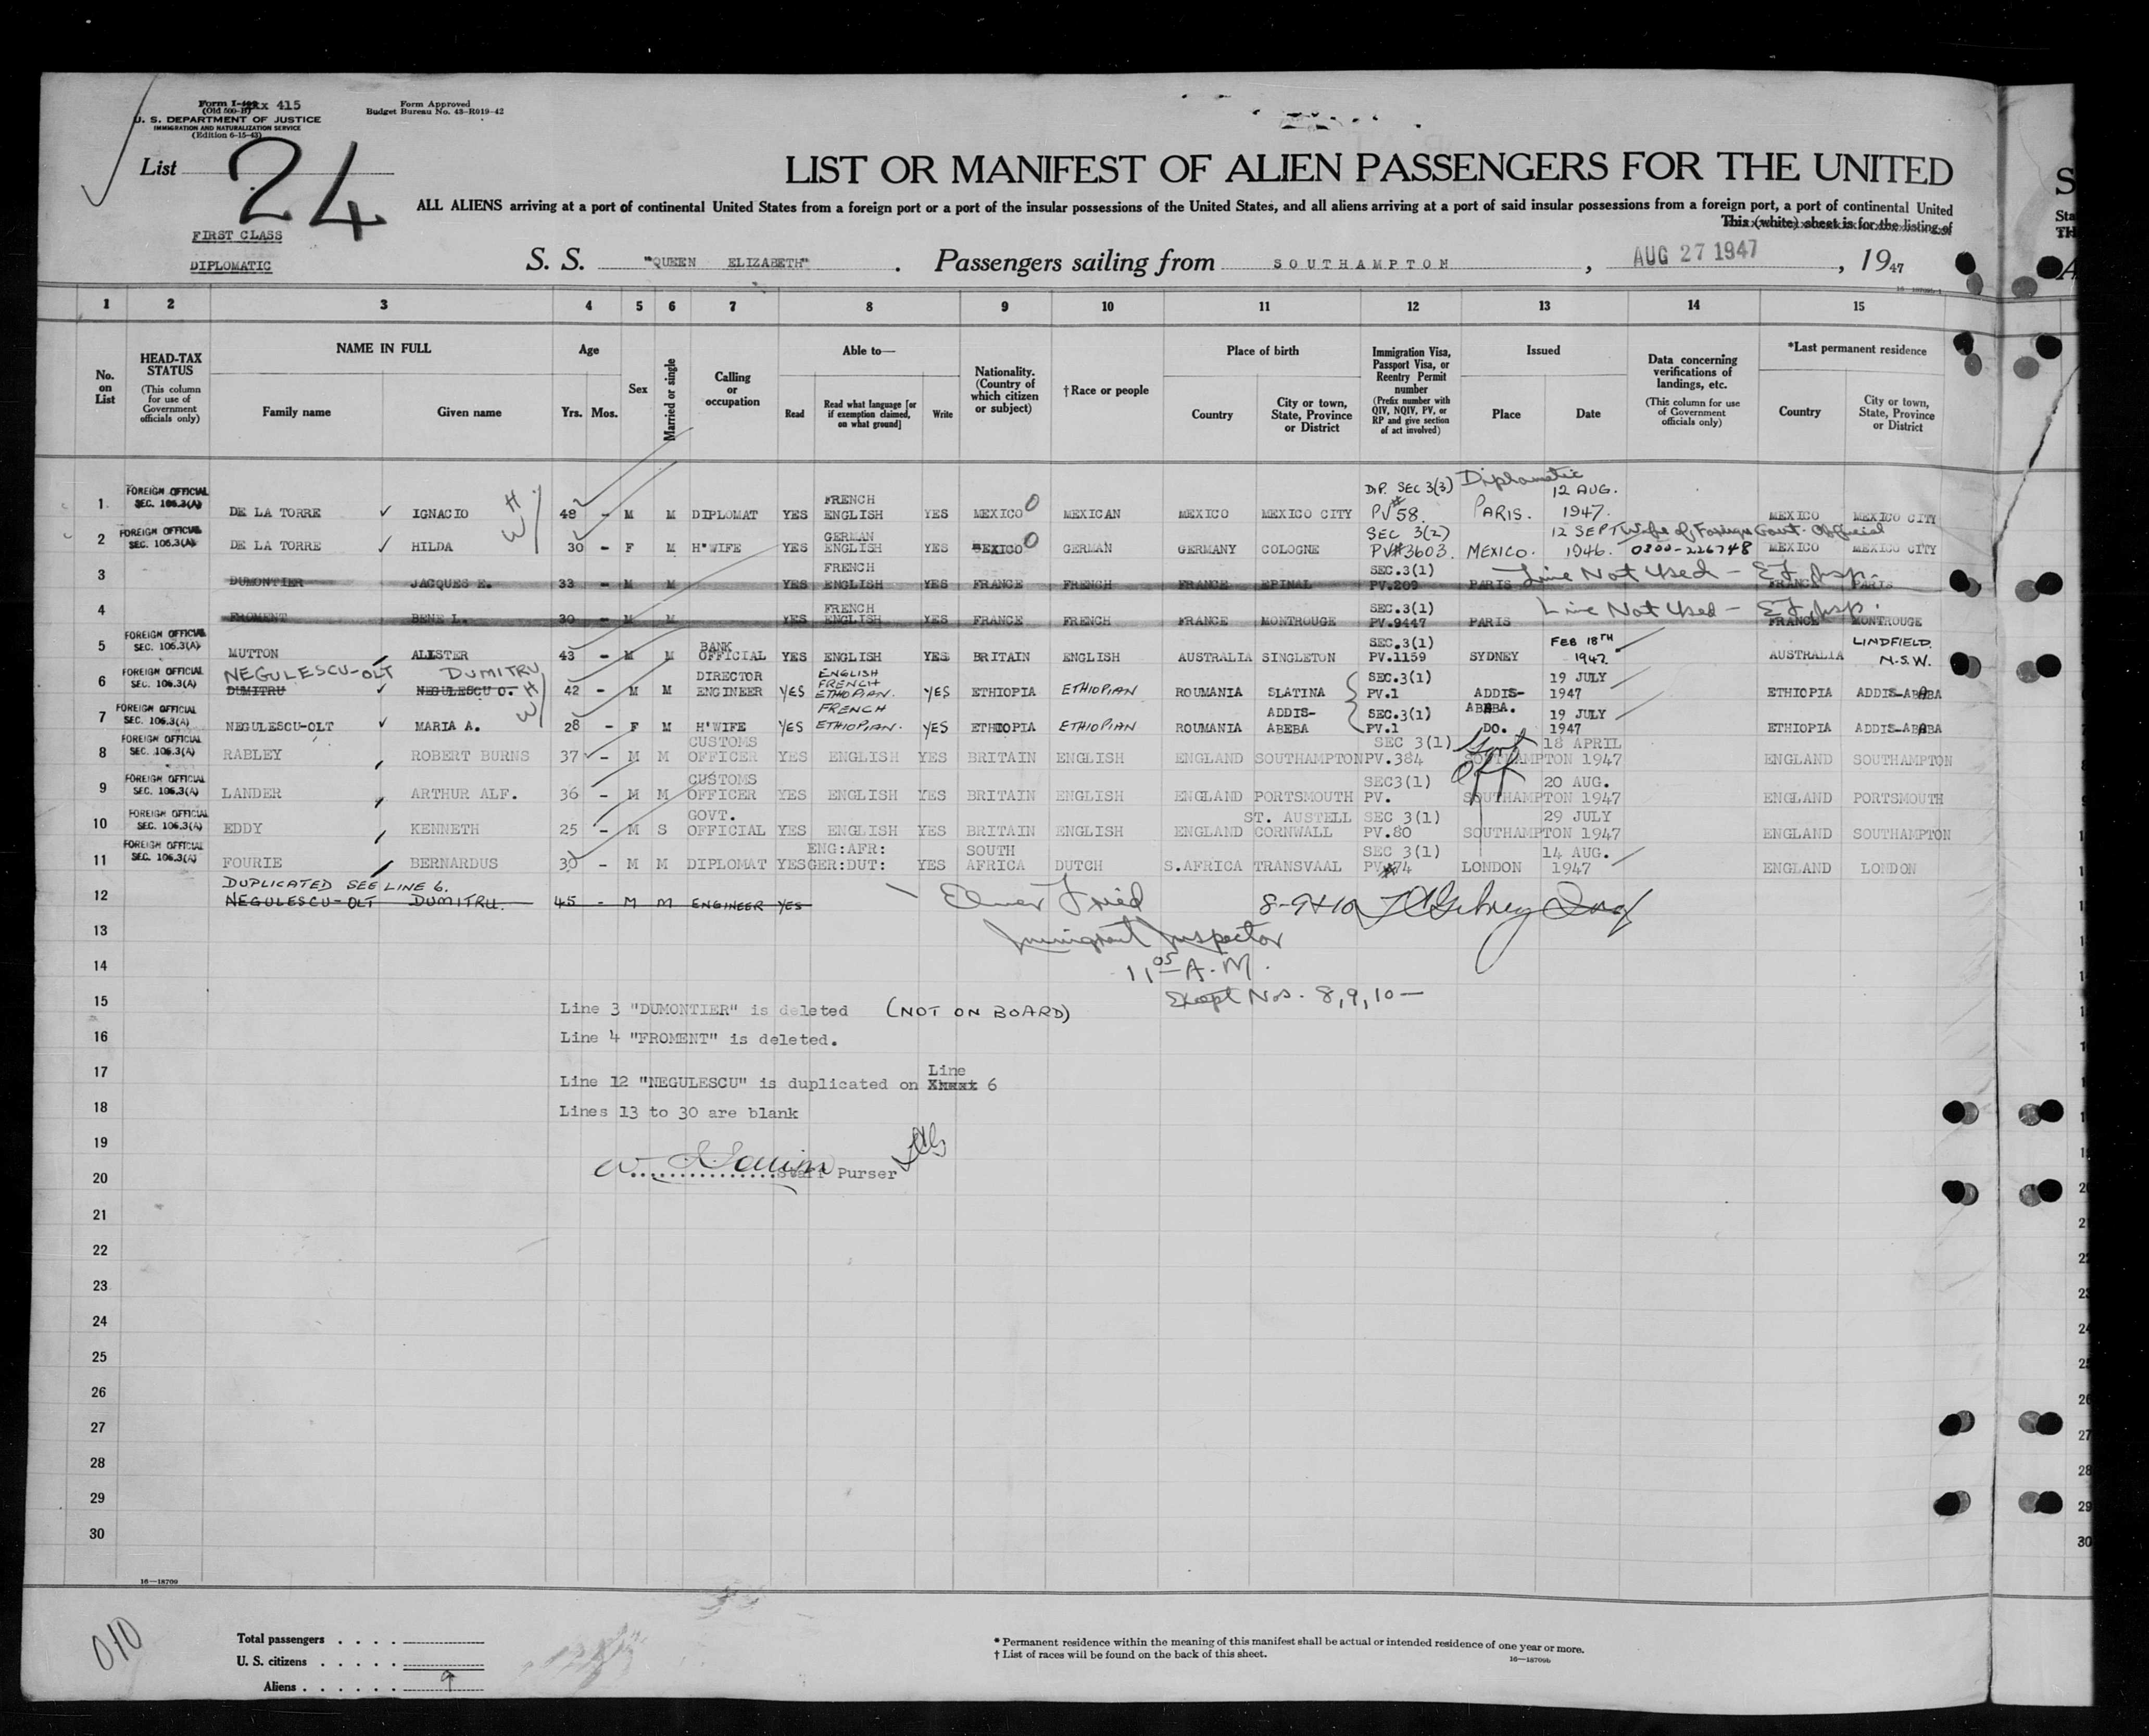 Form I-415
(Old 500-B)
U. S. DEPARTMENT OF JUSTICE
IMMIGRATION AND NATURALIZATION SERVICE
(Edition 6-15-43)
Form Approved
Budget Bureau No. 43-R019-42
List 24
FIRST CLASS
DIPLOMATIC
LIST OR MANIFEST OF ALIEN PASSENGERS FOR THE UNITED
ALL ALIENS arriving at a port of continental United States from a foreign port or a port of the insular possessions of the United States, and all aliens arriving at a port of said insular possessions from a foreign port, a port of continental United
This (white) sheet is for the listing of
S. S. "QUEEN ELIZABETH". Passengers sailing from SOUTHAMPTON, AUG 27 1947, 1947
1 2 3 4 5 6 7 8 9 10 11 12 13 14 15
No. on List
HEAD-TAX STATUS (This column for use of Government officials only)
NAME IN FULL
Family name Given name
Age
Yrs. Mos.
Sex
Married or single
Calling or occupation
Able to—
Read Read what language [or if exemption claimed, on what ground] Write
Nationality. (Country of which citizen or subject)
†Race or people
Place of birth
Country City or town, State, Province or District
Immigration Visa, Passport Visa, or Reentry Permit number (Prefix number with QIV, NQIV, PV, or RP and give section of act involved)
Issued
Place Date
Data concerning verifications of landings, etc. (This column for use of Government officials only)
*Last permanent residence
Country City or town, State, Province or District
1 FOREIGN OFFICIAL SEC. 106.3(A) DE LA TORRE IGNACIO H 48 - M M DIPLOMAT YES FRENCH ENGLISH YES MEXICO MEXICAN MEXICO MEXICO CITY DIP. SEC 3(3) PV#58. Diplomatic PARIS. 12 AUG. 1947. MEXICO MEXICO CITY
2 FOREIGN OFFICIAL SEC. 106.3(A) DE LA TORRE HILDA W 30 - F M H'WIFE YES GERMAN ENGLISH YES MEXICO GERMAN GERMANY COLOGNE SEC 3(2) PV#3603. MEXICO. 12 SEPT 1946. Wife of Foreign Govt. Official 0300-226748 MEXICO MEXICO CITY
3 DUMONTIER JACQUES E. 33 - M M YES FRENCH ENGLISH YES FRANCE FRENCH FRANCE EPINAL SEC.3(1) PV.209 PARIS Line Not Used - EF Insp. FRANCE PARIS
4 FROMENT RENE L. 30 - M M YES FRENCH ENGLISH YES FRANCE FRENCH FRANCE MONTROUGE SEC.3(1) PV.9447 PARIS Line Not Used - EF Insp. FRANCE MONTROUGE
5 FOREIGN OFFICIAL SEC. 106.3(A) MUTTON ALLSTER 43 - M M BANK OFFICIAL YES ENGLISH YES BRITAIN ENGLISH AUSTRALIA SINGLETON SEC.3(1) PV.1159 SYDNEY FEB 18TH 1947. AUSTRALIA LINDFIELD. N.S.W.
NEGULESCU-OLT DUMITRU
6 FOREIGN OFFICIAL SEC. 106.3(A) DUMITRU NEGULESCU O. H 42 - M M DIRECTOR ENGINEER YES ENGLISH FRENCH ETHOPIAN. YES ETHIOPIA ETHIOPIAN ROUMANIA SLATINA SEC.3(1) PV.1 ADDIS-ABABA. 19 JULY 1947 ETHIOPIA ADDIS-ABABA
7 FOREIGN OFFICIAL SEC. 106.3(A) NEGULESCU-OLT MARIA A. W 28 - F M H'WIFE YES FRENCH ETHIOPIAN. YES ETHIOPIA ETHIOPIAN ROUMANIA ADDIS-ABEBA SEC.3(1) PV.1 DO. 19 JULY 1947 ETHIOPIA ADDIS-ABABA
8 FOREIGN OFFICIAL SEC. 106.3(A) RABLEY ROBERT BURNS 37 - M M CUSTOMS OFFICER YES ENGLISH YES BRITAIN ENGLISH ENGLAND SOUTHAMPTON SEC 3(1) PV.384 SOUTHAMPTON 18 APRIL 1947 ENGLAND SOUTHAMPTON
Govt Off
9 FOREIGN OFFICIAL SEC. 106.3(A) LANDER ARTHUR ALF. 36 - M M CUSTOMS OFFICER YES ENGLISH YES BRITAIN ENGLISH ENGLAND PORTSMOUTH SEC3(1) PV. SOUTHAMPTON 20 AUG. 1947 ENGLAND PORTSMOUTH
10 FOREIGN OFFICIAL SEC. 106.3(A) EDDY KENNETH 25 - M S GOVT. OFFICIAL YES ENGLISH YES BRITAIN ENGLISH ENGLAND ST. AUSTELL CORNWALL SEC 3(1) PV.80 SOUTHAMPTON 29 JULY 1947 ENGLAND SOUTHAMPTON
11 FOREIGN OFFICIAL SEC. 106.3(A) FOURIE BERNARDUS 30 - M M DIPLOMAT YES ENG:AFR: GER:DUT: YES SOUTH AFRICA DUTCH S.AFRICA TRANSVAAL SEC 3(1) PV#74 LONDON 14 AUG. 1947 ENGLAND LONDON
DUPLICATED SEE LINE 6.
12 NEGULESCU-OLT DUMITRU. 45 - M M ENGINEER YES Elmer Fried 8-9+10
13 Immigrant Inspector
14 11 05 A.M.
Except Nos. 8, 9, 10 —
15 Line 3 "DUMONTIER" is deleted (NOT ON BOARD)
16 Line 4 "FROMENT" is deleted.
17 Line 12 "NEGULESCU" is duplicated on Line 6
18 Lines 13 to 30 are blank
19
20 Staff Purser
21
22
23
24
25
26
27
28
29
30
16—18709
010
Total passengers
U. S. citizens
Aliens 9
* Permanent residence within the meaning of this manifest shall be actual or intended residence of one year or more.
† List of races will be found on the back of this sheet.
16—18709b